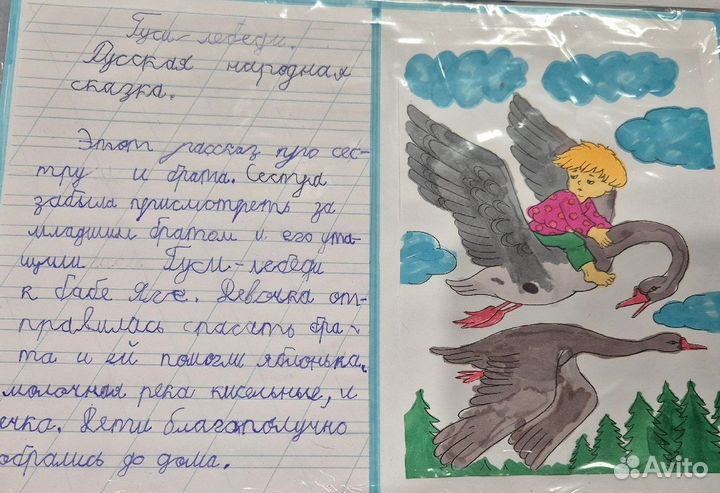 Гуси-лебеди.
Русская народная
сказка.
Этот рассказ про сес-
тру и брата. Сестра
забыла присмотреть за
младшим братом и его ута-
щили Гуси-лебеди
к бабе Яге. Девочка от-
правилась спасать бра-
та и ей помогли яблонька,
молочная река кисельные, и
ечка. Дети благополучно
обрались до дома.
Avito